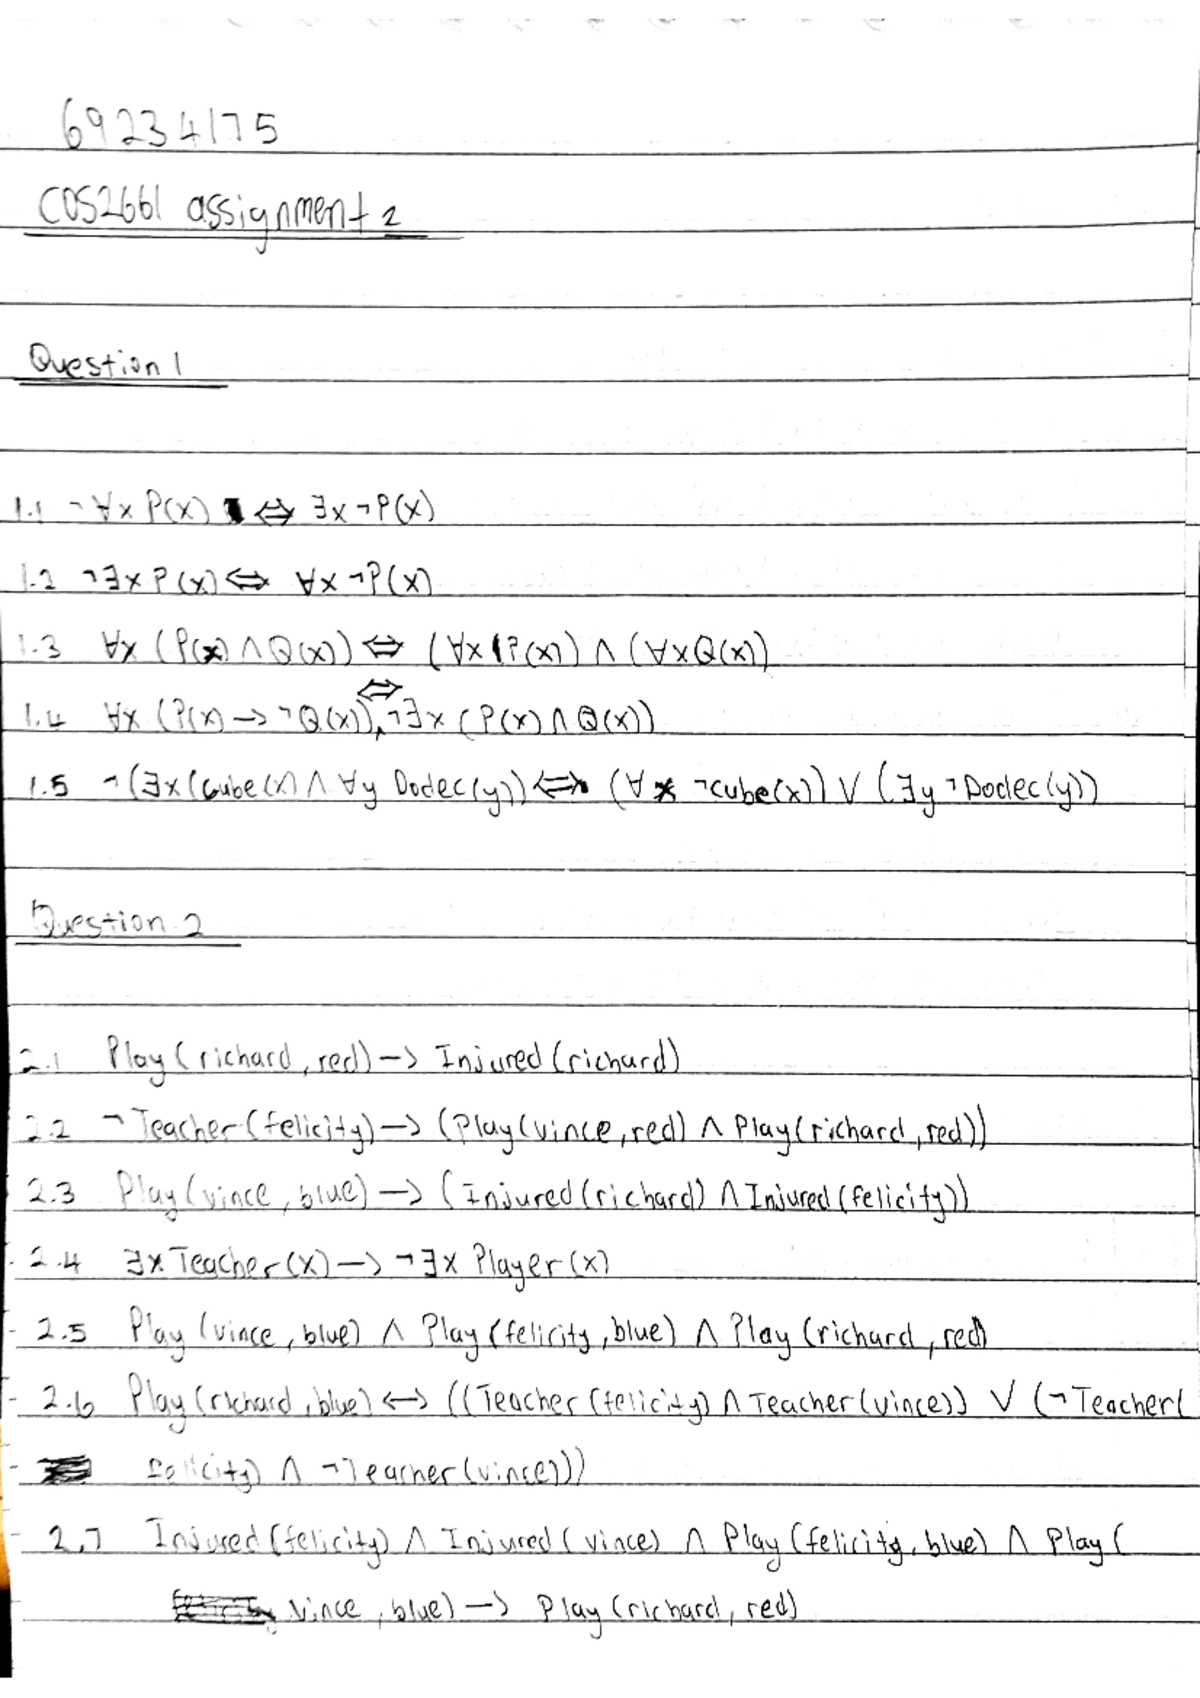 69234175
COS2661 assignment 2
Question 1
1.1 ¬∀x P(x) ⇔ ∃x¬P(x)
1.2 ¬∃x P(x) ⇔ ∀x ¬P(x)
1.3 ∀x (P(x) ∧ Q(x)) ⇔ (∀x (P(x)) ∧ (∀x Q(x))
1.4 ∀x (P(x) → ¬Q(x)) ⇔ ¬∃x (P(x) ∧ Q(x))
1.5 ¬(∃x(Cube(x) ∧ ∀y Dodec(y)) ⇔ (∀x ¬cube(x)) ∨ (∃y ¬Dodec(y))
Question 2
2.1 Play(richard, red) → Injured(richard)
2.2 ¬Teacher(felicity) → (Play(vince, red) ∧ Play(richard, red))
2.3 Play(vince, blue) → (Injured(richard) ∧ Injured(felicity))
2.4 ∃x Teacher(x) → ¬∃x Player(x)
2.5 Play(vince, blue) ∧ Play(felicity, blue) ∧ Play(richard, red)
2.6 Play(richard, blue) ↔ ((Teacher(felicity) ∧ Teacher(vince)) ∨ (¬Teacher(
felicity) ∧ ¬Teacher(vince)))
2.7 Injured(felicity) ∧ Injured(vince) ∧ Play(felicity, blue) ∧ Play(
vince, blue) → Play(richard, red)